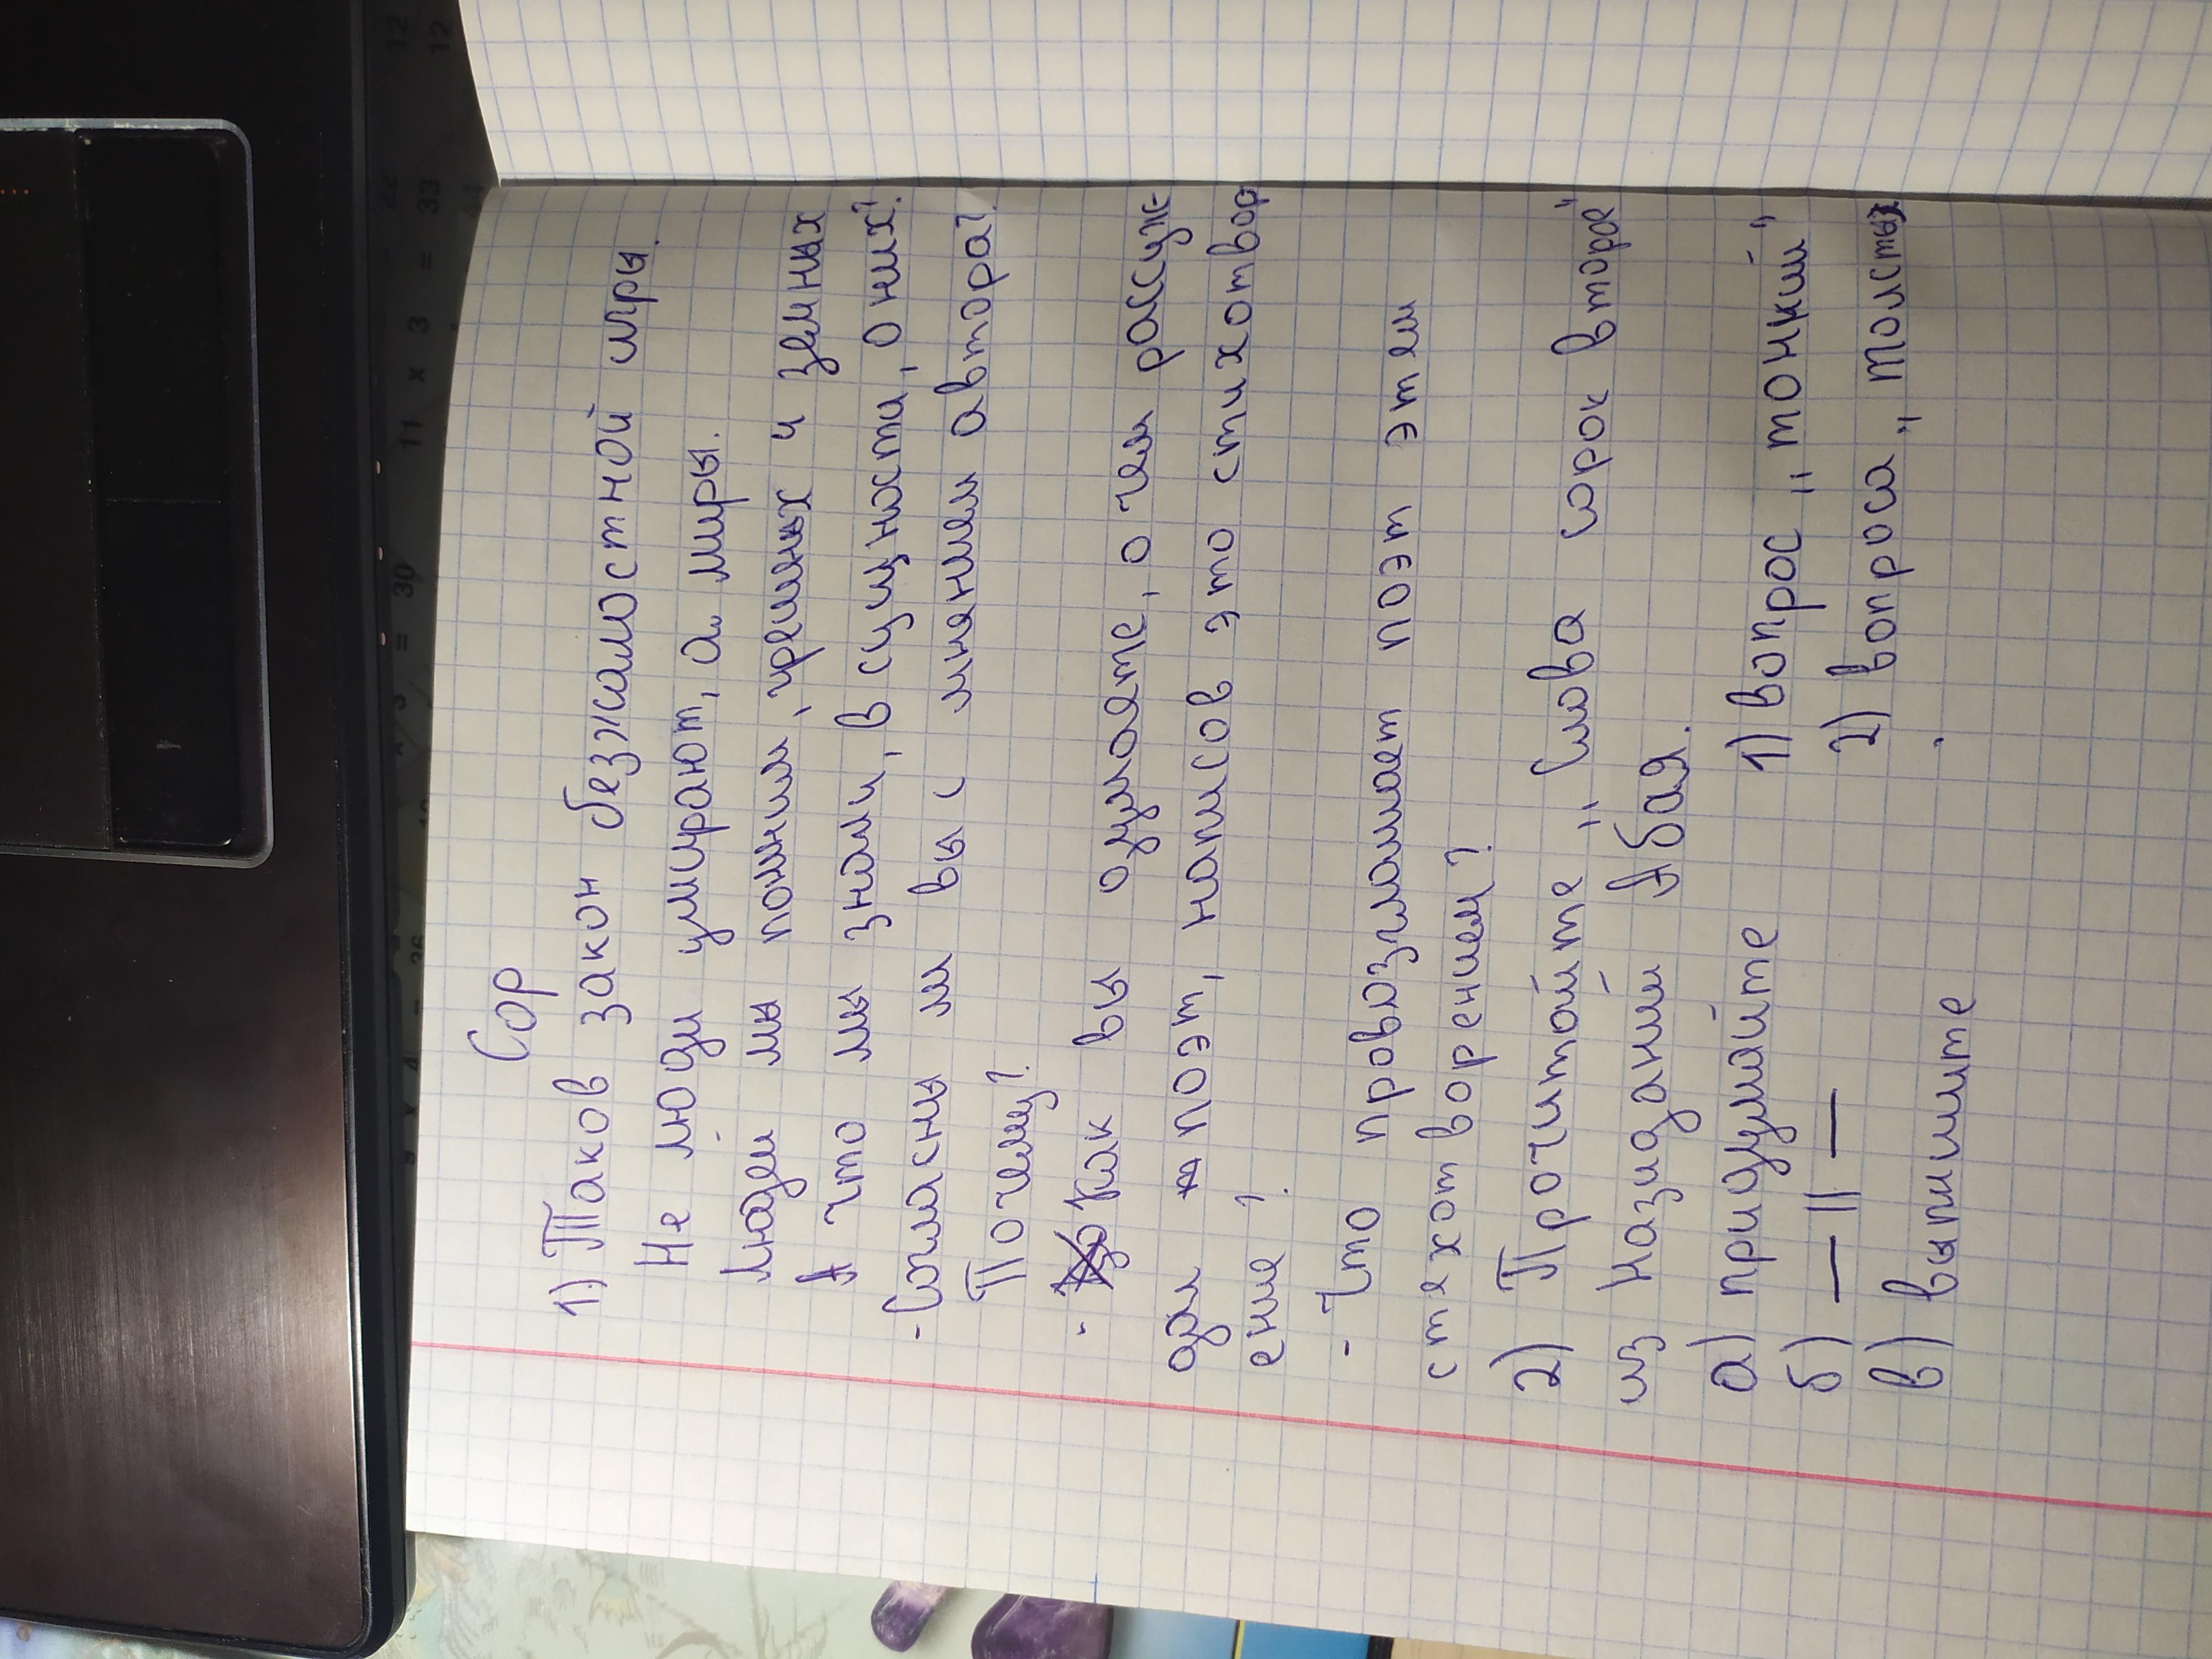 Сор
1) Таков закон безжалостной игры.
Не люди умирают, а миры.
Людей мы помним, грешных и земных
А что мы знали, в сущности, о них?
- Согласны ли вы с мнением автора?
Почему?
- Как вы думаете, о чем рассуж
дал поэт, написав это стихотвор
ение?
- Что провозглашает поэт этем
стехотворением?
2) Прочитайте „Слова сорок второе"
из Назиданий Абая.
а) придумайте 1) вопрос „тонкий"
б) —||— 2) вопроса „толстых
в) выпишите
12
12
22
33
44
11 x 3 =
= 30